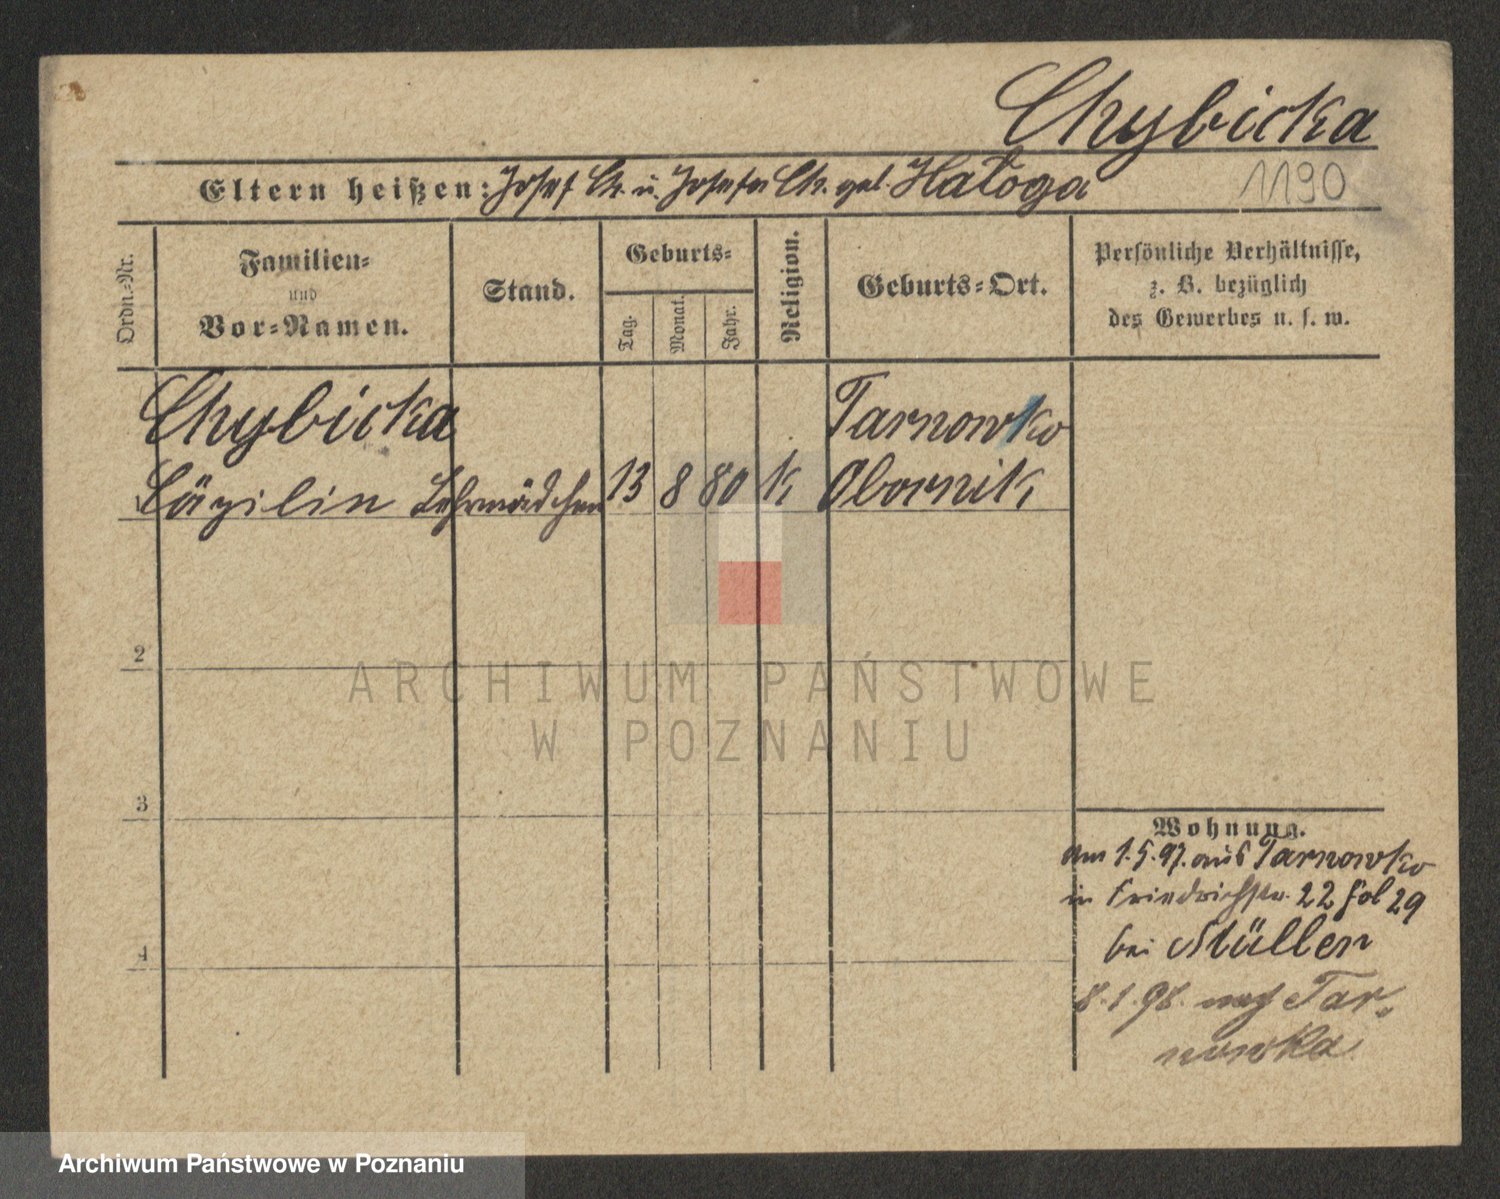 Chybicka
Eltern heißen: Josef Ch. u. Josefa Ch. geb. Hałoga
1190
Ordn.-Nr.
Familien-
und
Vor-Namen.
Stand.
Geburts-
Tag.
Monat.
Jahr.
Religion.
Geburts-Ort.
Persönliche Verhältnisse,
z. B. bezüglich
des Gewerbes u. s. w.
Chybicka
Tarnowko
1 Cäzilin Lehrmädchen 13 8 80 k Obornik
2
3
4
Wohnung.
Am 1.5.97. aus Tarnowko
in Friedrichstr. 22 fol 29
bei Müller
8.1.98. nach Tar-
nowka
ARCHIWUM PAŃSTWOWE
W POZNANIU
Archiwum Państwowe w Poznaniu